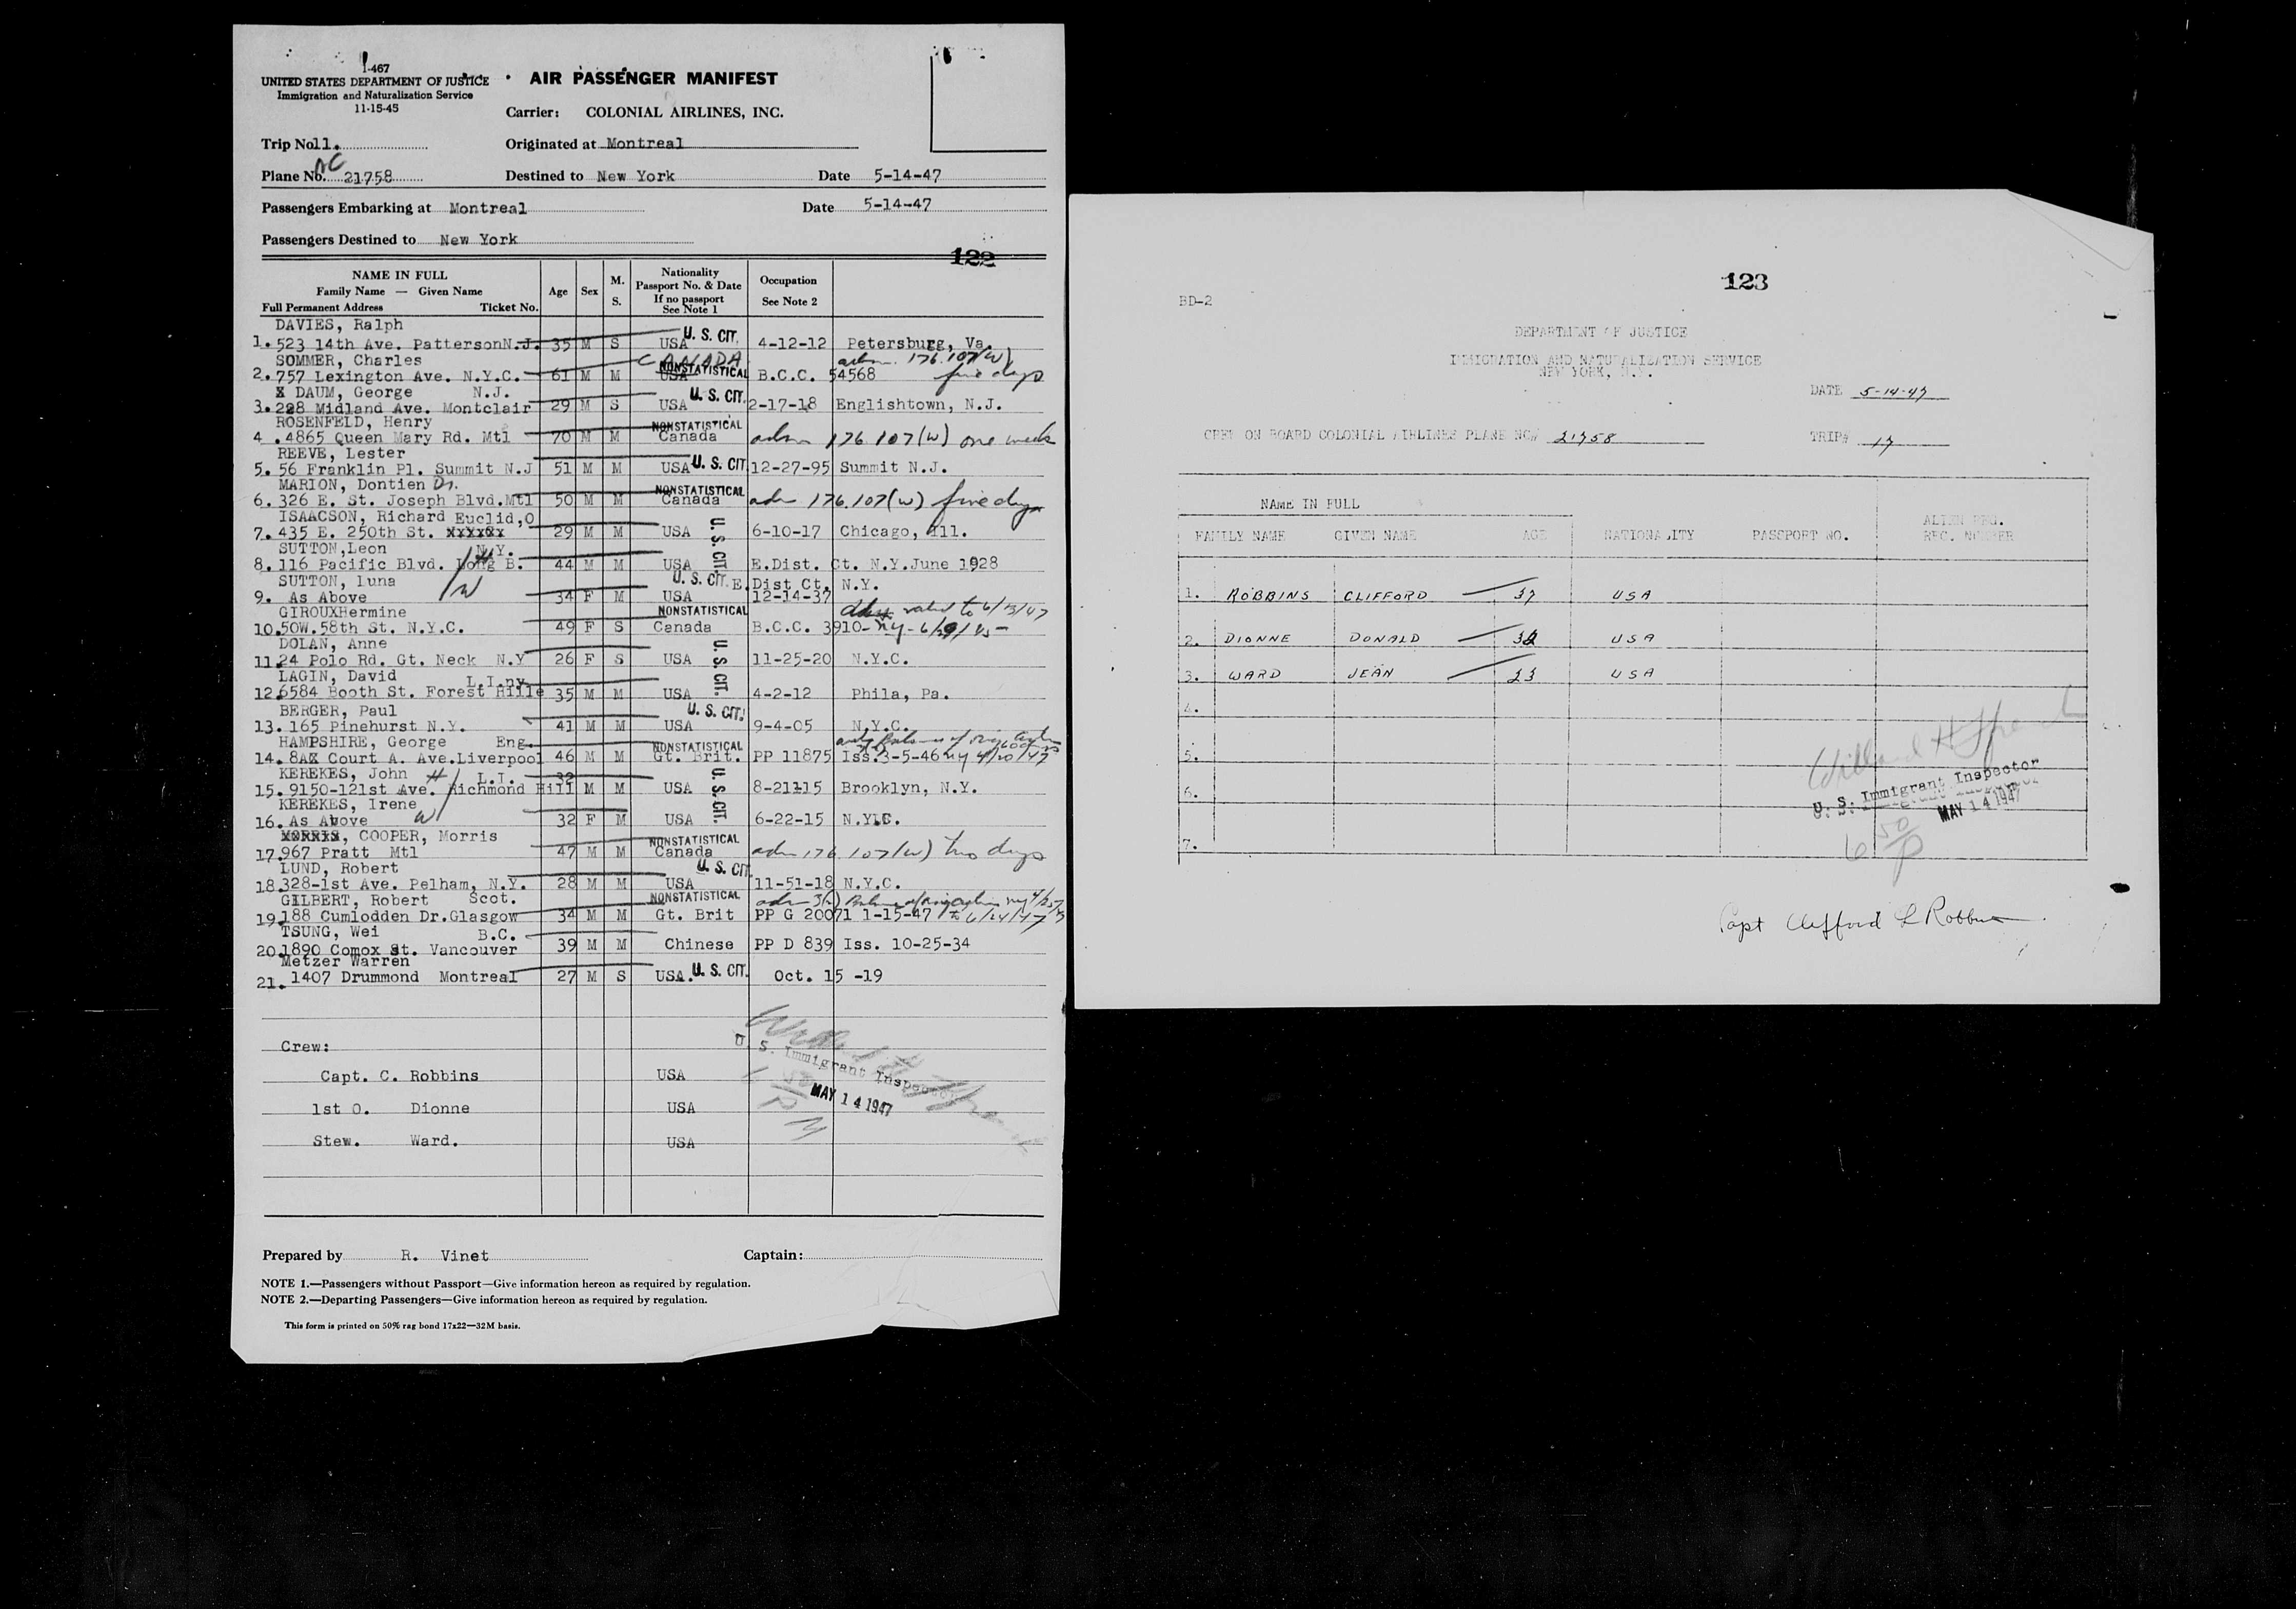 I-467
UNITED STATES DEPARTMENT OF JUSTICE
Immigration and Naturalization Service
11-15-45
AIR PASSENGER MANIFEST
Carrier: COLONIAL AIRLINES, INC.
Trip No. 11.
Originated at Montreal
Plane No. NC 21758
Destined to New York Date 5-14-47
Passengers Embarking at Montreal Date 5-14-47
Passengers Destined to New York
122
NAME IN FULL
Family Name — Given Name
Full Permanent Address Ticket No.
Age
Sex
M.
S.
Nationality
Passport No. & Date
If no passport
See Note 1
Occupation
See Note 2
DAVIES, Ralph
1. 523 14th Ave. Patterson N.J. 35 M S USA U. S. CIT. 4-12-12 Petersburg, Va.
SOMMER, Charles CANADA adm. 176.107(W)
2. 757 Lexington Ave. N.Y.C. 61 M M USA NONSTATISTICAL B.C.C. 54568 five days
X DAUM, George N.J.
3. 228 Midland Ave. Montclair 29 M S USA U. S. CIT. 2-17-18 Englishtown, N.J.
ROSENFELD, Henry NONSTATISTICAL
4. 4865 Queen Mary Rd. Mtl 70 M M Canada adm 176.107(W) one week
REEVE, Lester
5. 56 Franklin Pl. Summit N.J 51 M M USA U. S. CIT. 12-27-95 Summit N.J.
MARION, Dontien Dr. NONSTATISTICAL
6. 326 E. St. Joseph Blvd. Mtl 50 M M Canada adm 176.107(W) five days
ISAACSON, Richard Euclid,O
7. 435 E. 250th St. 29 M M USA U. S. CIT. 6-10-17 Chicago, Ill.
SUTTON,Leon N.Y.
8. 116 Pacific Blvd. Long B. H 44 M M USA E.Dist. Ct. N.Y.June 1928
SUTTON, luna U. S. CIT. E. Dist Ct. N.Y.
9. As Above W 34 F M USA 12-14-37
GIROUXHermine NONSTATISTICAL valid to 6/13/47
10. 50W. 58th St. N.Y.C. 49 F S Canada B.C.C. 3910- NY-
DOLAN, Anne
11. 24 Polo Rd. Gt. Neck N.Y 26 F S USA U. S. CIT. 11-25-20 N.Y.C.
LAGIN, David L.I.ny.
12. 6584 Booth St. Forest Hills 35 M M USA 4-2-12 Phila, Pa.
BERGER, Paul U. S. CIT.
13. 165 Pinehurst N.Y. 41 M M USA 9-4-05 N.Y.C.
HAMPSHIRE, George Eng. NONSTATISTICAL
14. 8A Court A. Ave.Liverpool 46 M M Gt. Brit. PP 11875 Iss.3-5-46 NY 4/20/47
KEREKES, John H L.I. 32
15. 9150-121st Ave. Richmond Hill M M USA U. S. CIT. 8-21-15 Brooklyn, N.Y.
KEREKES, Irene
16. As Above W 32 F M USA 6-22-15 N.Y.C.
MORRIS, COOPER, Morris NONSTATISTICAL
17. 967 Pratt Mtl 47 M M Canada adm 176.107(W) two days
LUND, Robert U. S. CIT.
18. 328-1st Ave. Pelham, N.Y. 28 M M USA 11-51-18 N.Y.C.
GILBERT, Robert Scot. NONSTATISTICAL
19. 188 Cumlodden Dr.Glasgow 34 M M Gt. Brit PP G 20071 1-15-47 to 6/24/47
TSUNG, Wei B.C.
20. 1890 Comox St. Vancouver 39 M M Chinese PP D 839 Iss. 10-25-34
Metzer Warren
21. 1407 Drummond Montreal 27 M S USA. U. S. CIT. Oct. 15 -19
Crew:
Capt. C. Robbins USA
1st O. Dionne USA
Stew. Ward. USA
U. S. Immigrant Inspector
MAY 14 1947
6 50 PM
Prepared by R. Vinet
Captain:
NOTE 1.—Passengers without Passport—Give information hereon as required by regulation.
NOTE 2.—Departing Passengers—Give information hereon as required by regulation.
This form is printed on 50% rag bond 17x22—32M basis.
123
BD-2
DEPARTMENT OF JUSTICE
IMMIGRATION AND NATURALIZATION SERVICE
NEW YORK, N.Y.
DATE 5-14-47
CREW ON BOARD COLONIAL AIRLINES PLANE NO# 21758
TRIP# 17
NAME IN FULL
FAMILY NAME GIVEN NAME AGE NATIONALITY PASSPORT NO. ALIEN REG. REC. NUMBER
1. ROBBINS CLIFFORD 37 USA
2. DIONNE DONALD 32 USA
3. WARD JEAN 23 USA
4.
5.
6.
7.
U. S. Immigrant Inspector
MAY 14 1947
6 50 P
Capt Clifford L Robbins